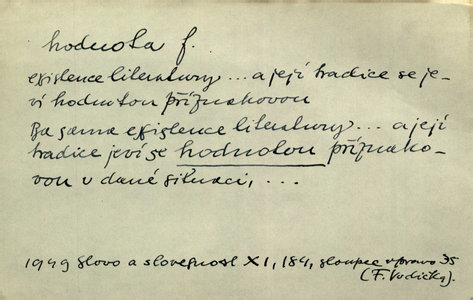 hodnota f.
existence literatury ... a její tradice se je-
ví hodnotou příznakovou
Ba sama existence literatury ... a její
tradice jeví se hodnotou příznako-
vou v dané situaci, ...
1949 Slovo a slovesnost XI, 184, sloupec vpravo 35
(F. Vodička).